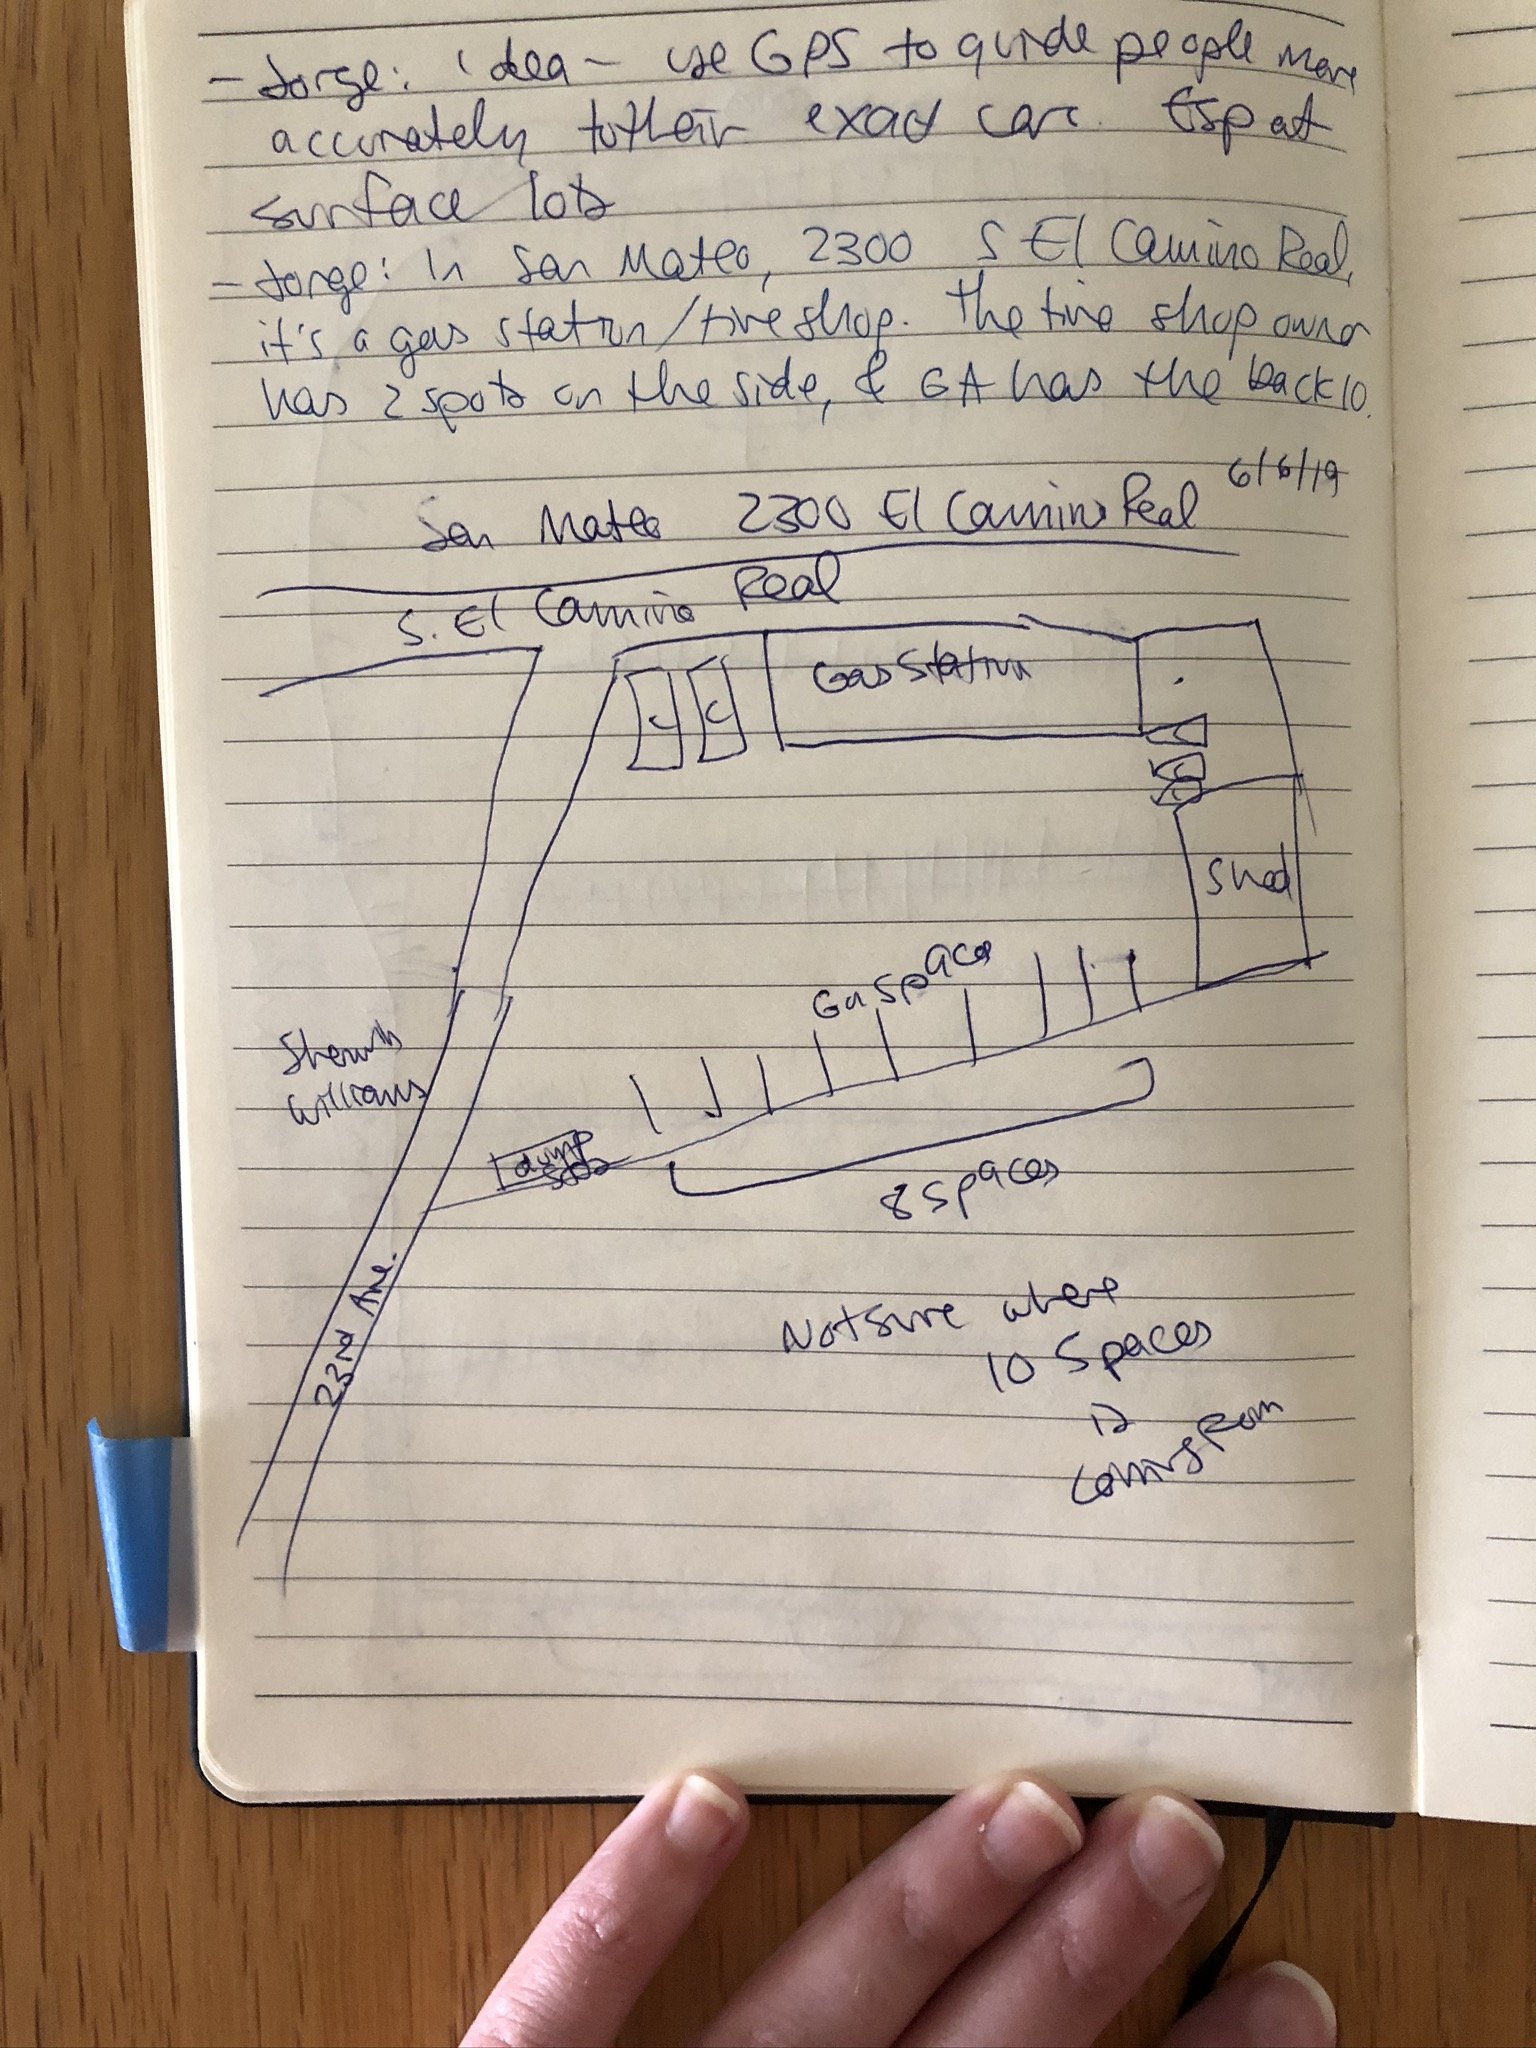 - Jorge: idea - use GPS to guide people more
accurately to their exact car. Esp at
surface lots
- Jorge: In San Mateo, 2300 S El Camino Real,
it's a gas station/tire shop. The tire shop owner
has 2 spots on the side, & GA has the back 10.
6/6/19
San Mateo 2300 El Camino Real
S. El Camino Real
Gas Station
C C
Shed
Ga spaces
Sherwin
Williams
dump
8 spaces
23rd Ave.
Not sure where
10 spaces
is
coming from